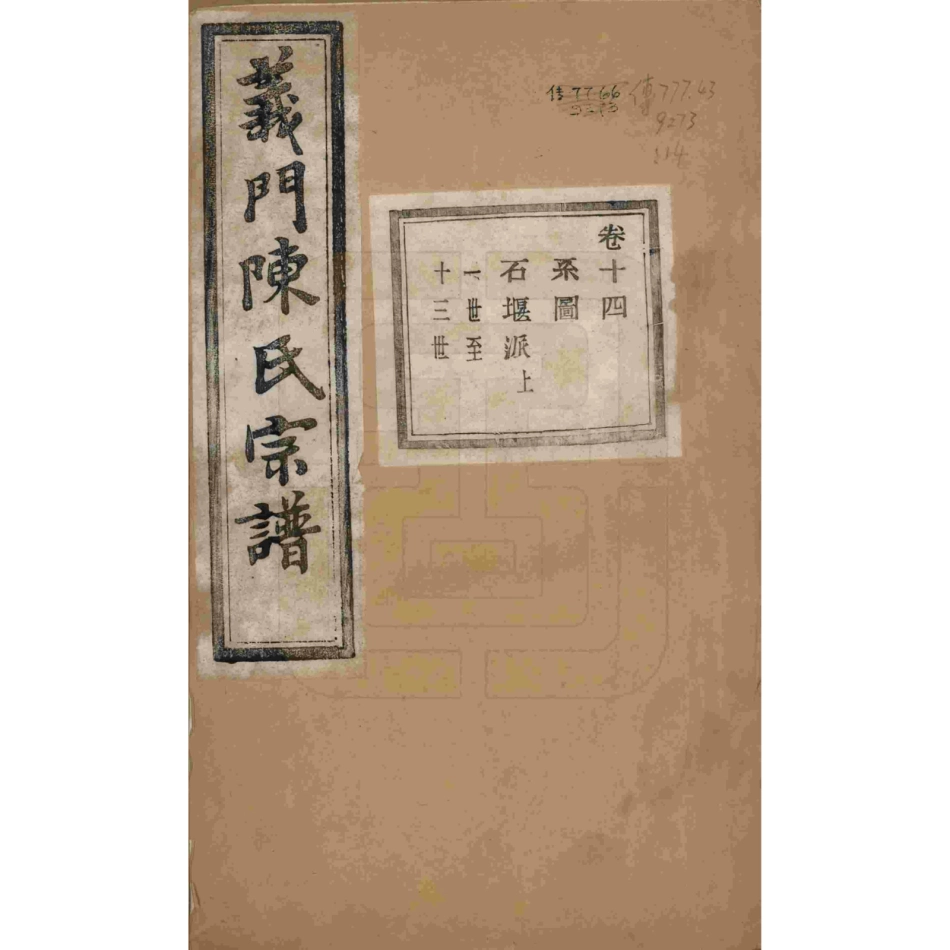 義門陳氏宗譜
卷十四
系圖
石堰派上
一世至
十三世
傳777.43
9273
114